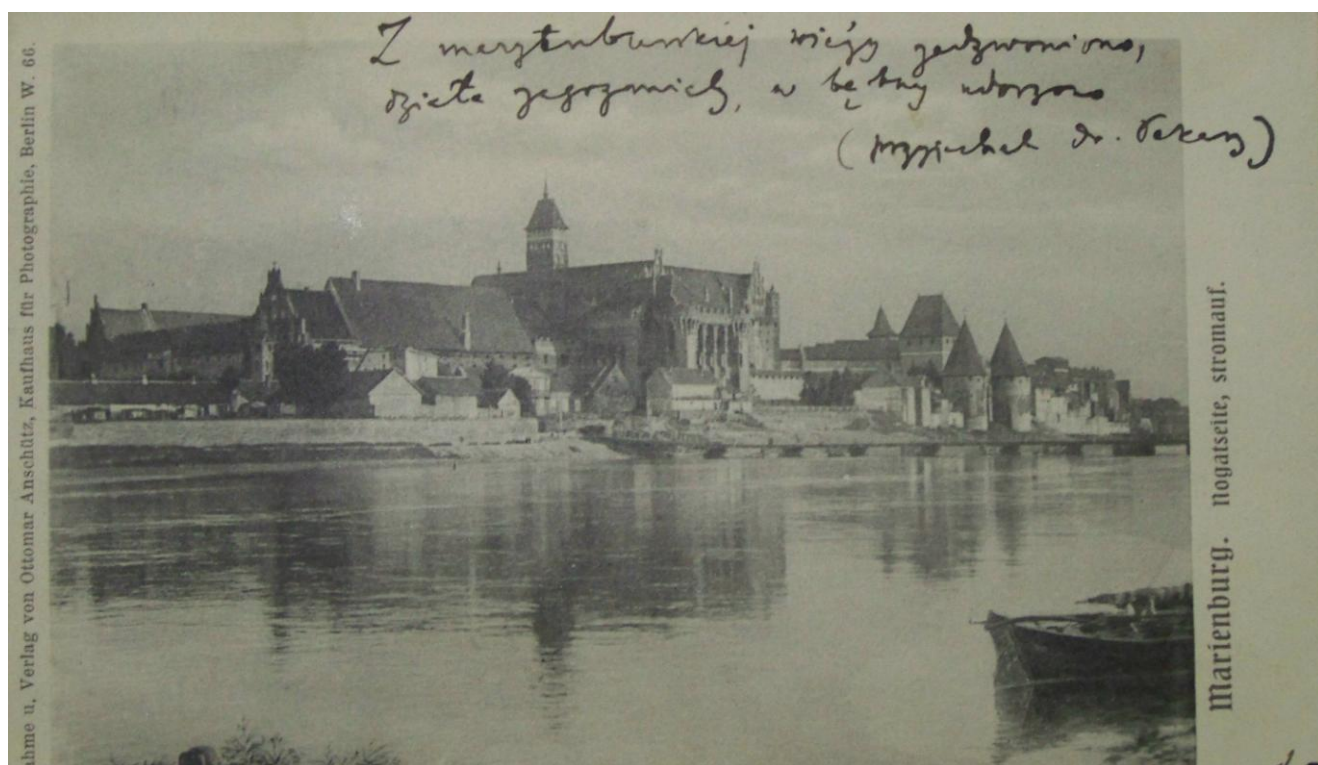 Z maryenburskiej wieży zadzwoniono,
działa zagrzmiały, w bębny uderzono
(przyjechał dr.
ahme u. Verlag von Ottomar Anschütz, Kaufhaus für Photographie, Berlin W. 66.
Marienburg. Nogatseite, stromauf.